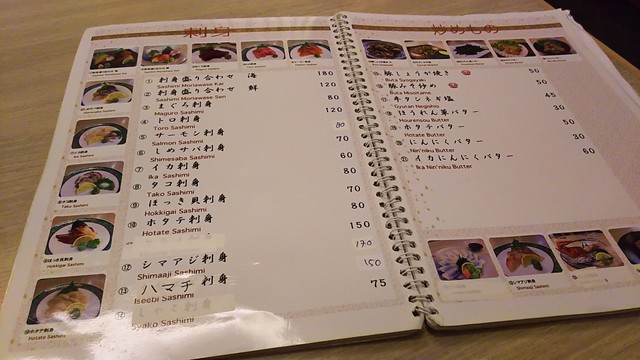 刺身
① 刺身盛り合わせ 海 180
Sashimi Moriawase Kai
② 刺身盛り合わせ 鮮 120
Sashimi Moriawase Sen
③ まぐろ刺身 80
Maguro Sashimi
④ トロ刺身 120
Toro Sashimi
⑤ サーモン刺身 80
Salmon Sashimi
⑥ しめサバ刺身 70
Shimesaba Sashimi
⑦ イカ刺身 60
Ika Sashimi
⑧ タコ刺身 80
Tako Sashimi
⑨ ほっき貝刺身 70
Hokkigai Sashimi
⑩ ホタテ刺身 80
Hotate Sashimi
150
⑫ シマアジ刺身 170
Shimaaji Sashimi
⑬ ハマチ刺身 150
Iseebi Sashimi
⑭ 75
Syako Sashimi
Tako Sashimi
⑨ほっき貝刺身
Hokkigai Sashimi
⑩ホタテ刺身
Hotate Sashimi
炒めもの
豚しょうが焼き 50
Buta Syogayaki
豚みそ炒め 50
Buta Misoitame
牛タンネギ塩 45
Gyutan Negishio
ほうれん草バター 30
Hourensou Butter
ホタテバター 50
Hotate Butter
にんにくバター 30
Nin'niku Butter
イカにんにくバター 60
Ika Nin'niku Butter
⑫シマアジ刺身
Shimaaji Sashimi